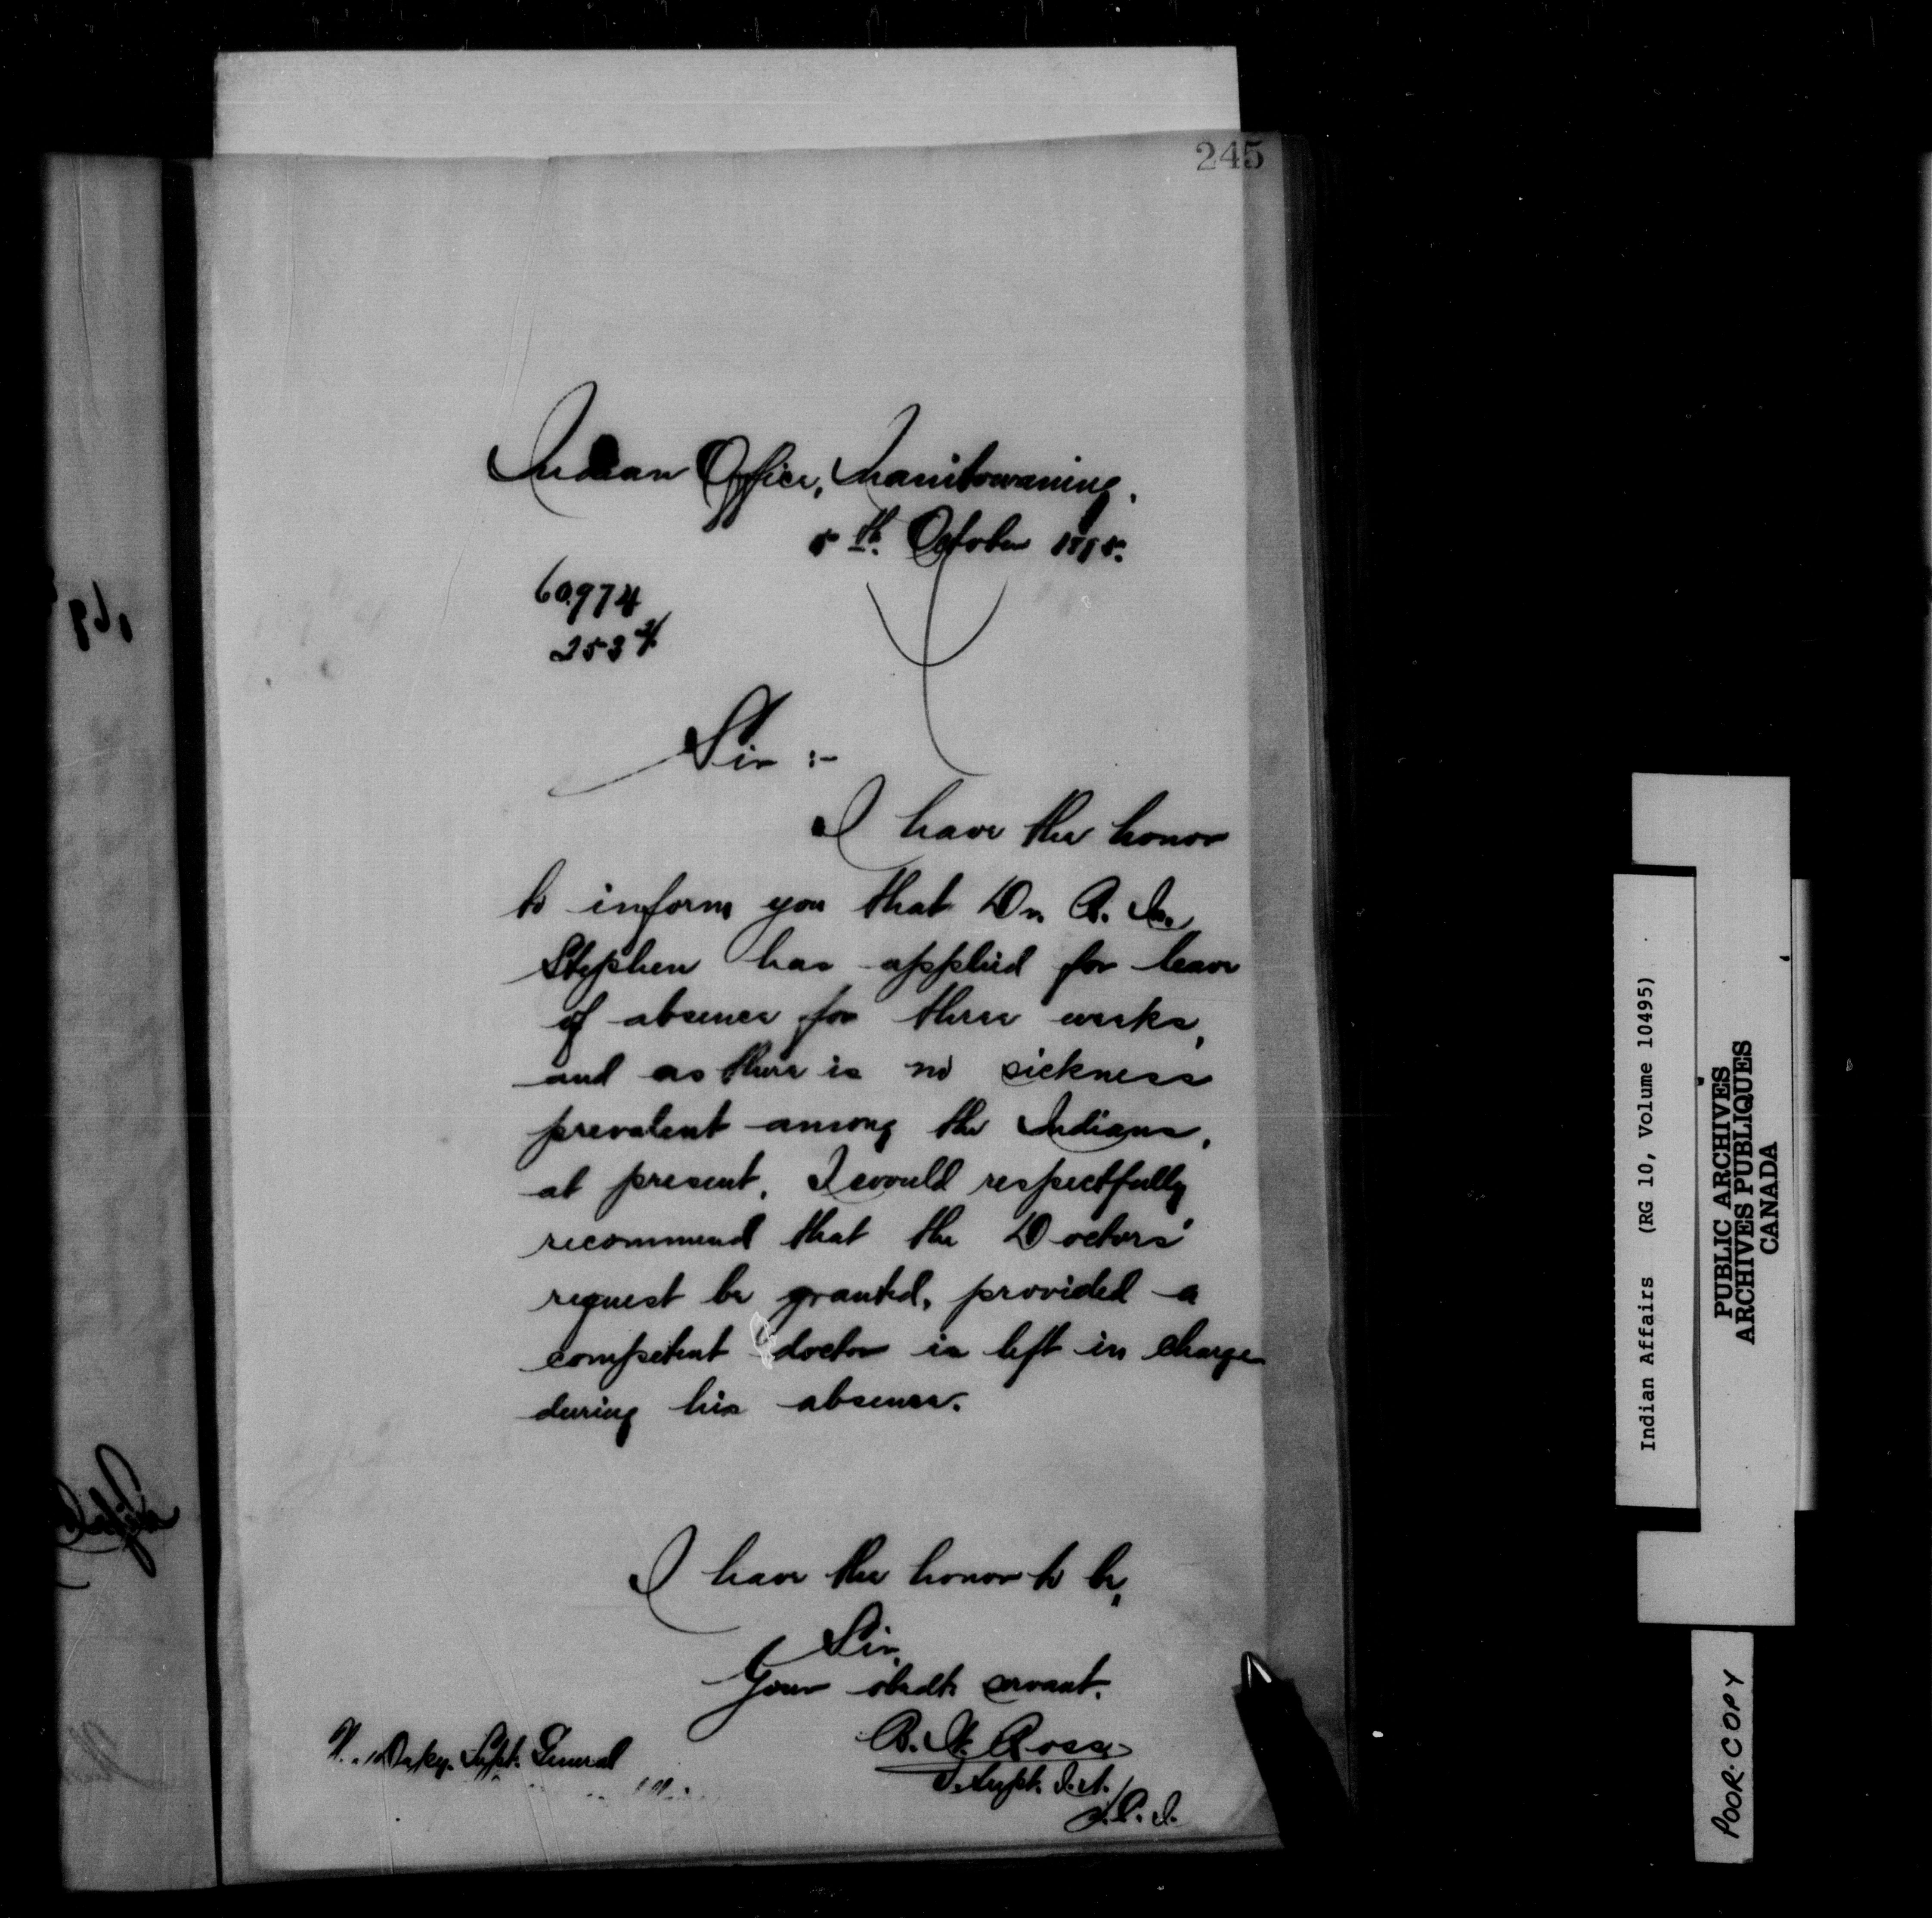 245
Indian Office, Manitowaning.
5th. October 1895.
60974
253
Sir :-
I have the honor
to inform you that Dr. R. M.
Stephen has applied for leave
of absence for three weeks,
and as there is no sickness
prevalent among the Indians,
at present, I would respectfully
recommend that the Doctors'
request be granted, provided a
competent doctor is left in charge
during his absence.
I have the honor to be,
Sir,
Your obedt. servant.
B. W. Ross
Supt. I.A.
Depy. Supt. General
Indian Affairs (RG 10, Volume 10495)
PUBLIC ARCHIVES
ARCHIVES PUBLIQUES
CANADA
POOR COPY